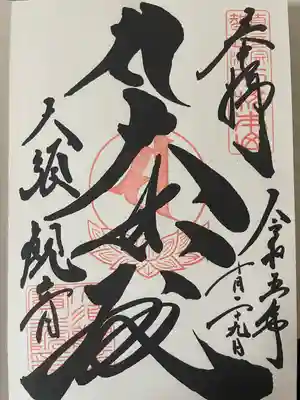 奉拝
令和五年
十月二十九日
大悲殿
大須観音